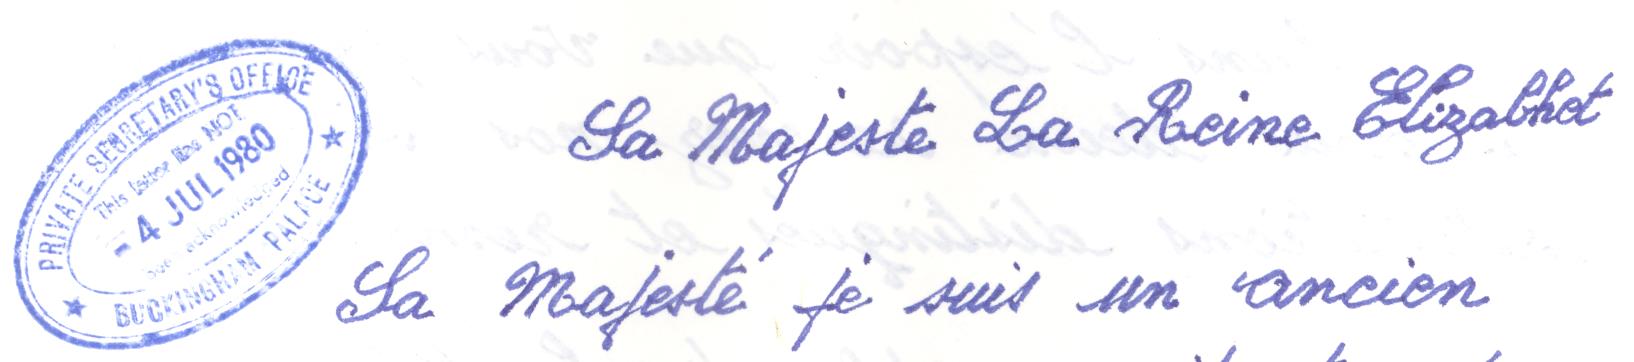 PRIVATE SECRETARY'S OFFICE
This letter has NOT
- 4 JUL 1980
been acknowledged
BUCKINGHAM PALACE
Sa Majeste La Reine Elizabhet
Sa Majesté je suis un ancien